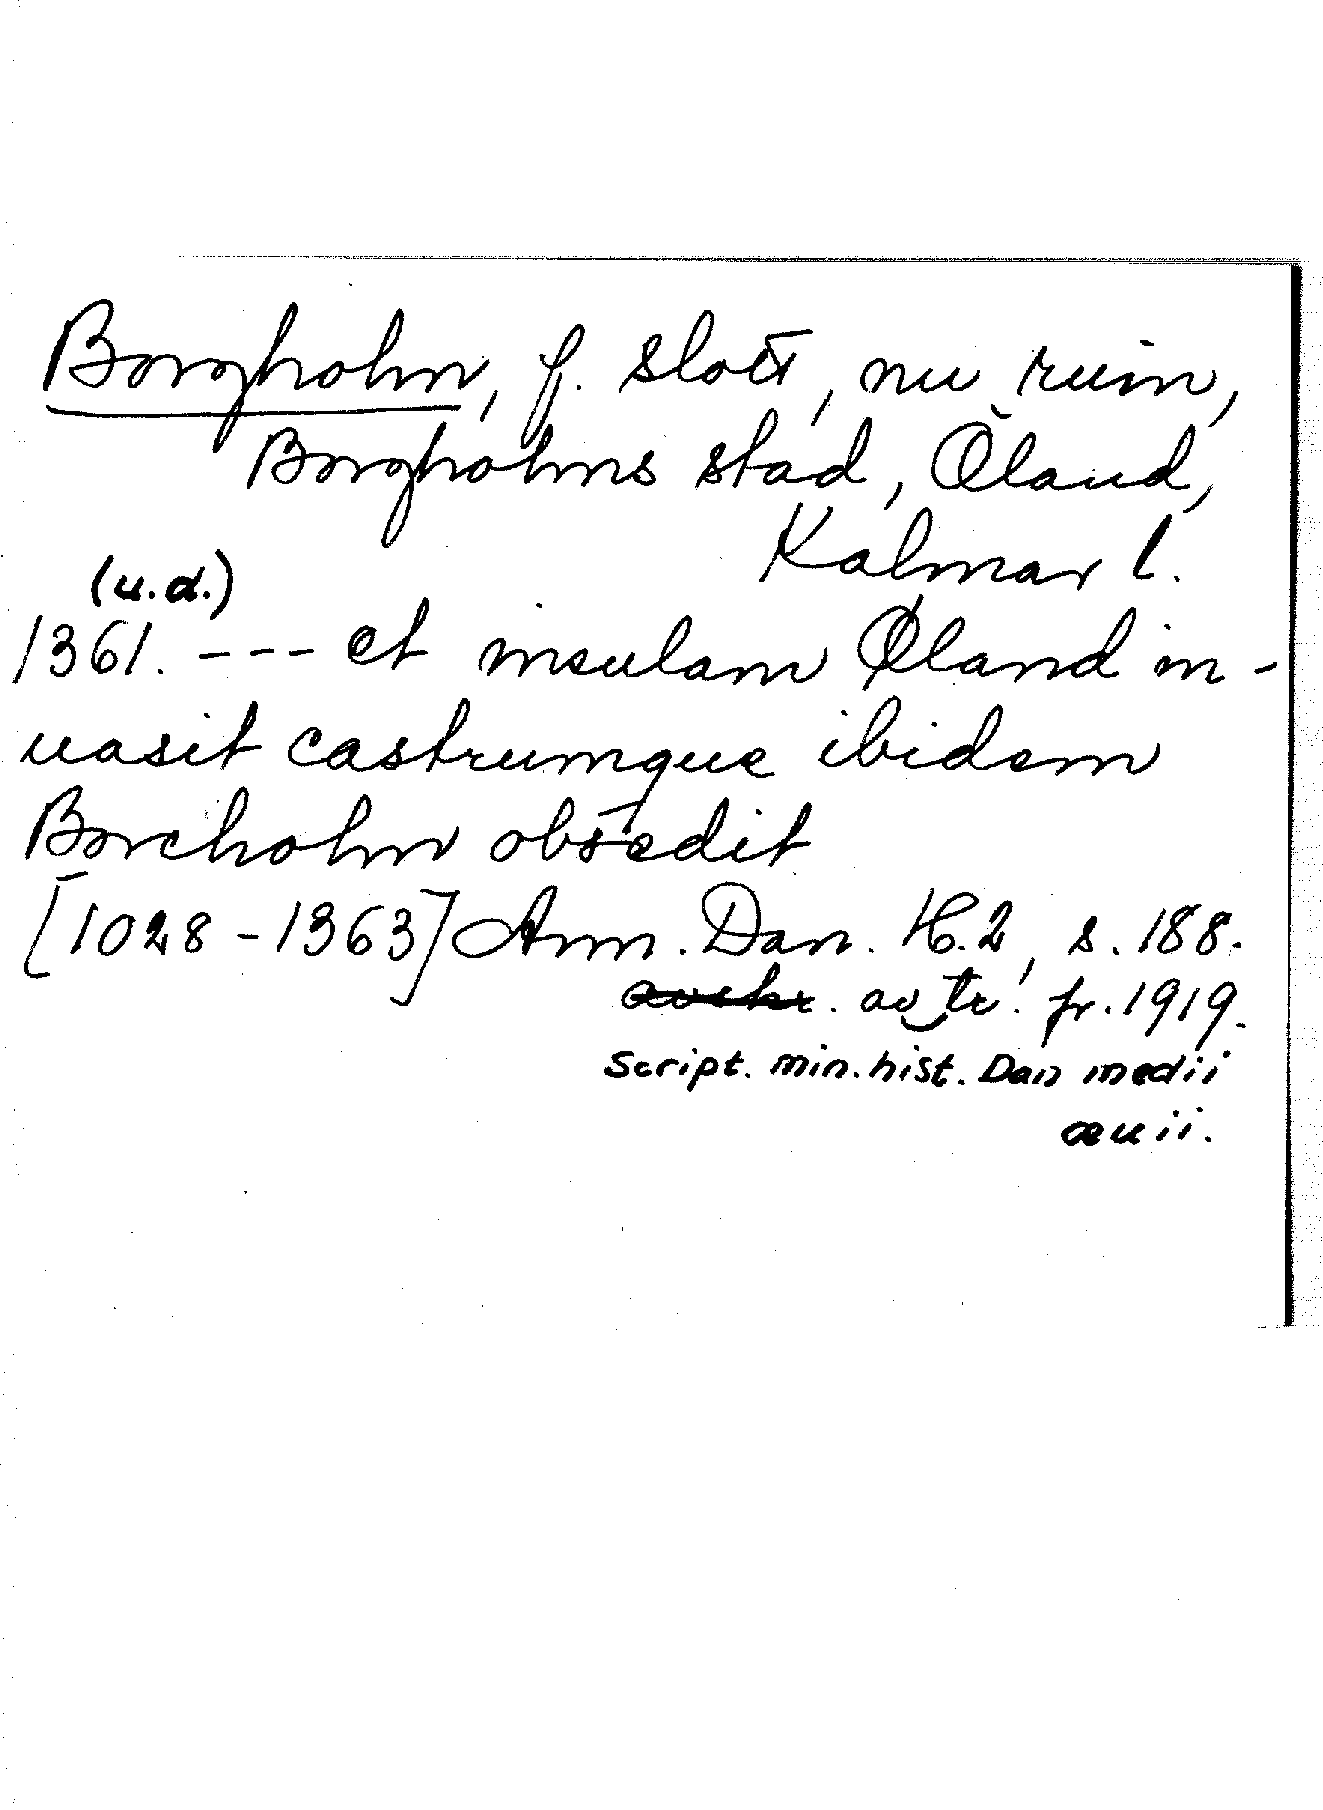 Borgholm, f. slott, nu ruin,
Borgholms stad, Öland,
Kalmar l.
(u.d.)
1361. --- et insulam Øland in-
uasit castrumque ibidem
Borcholm obsedit
[1028-1363] Ann. Dan. H.2, s. 188.
av tr. fr. 1919.
Script. min. hist. Dan medii
æuii.